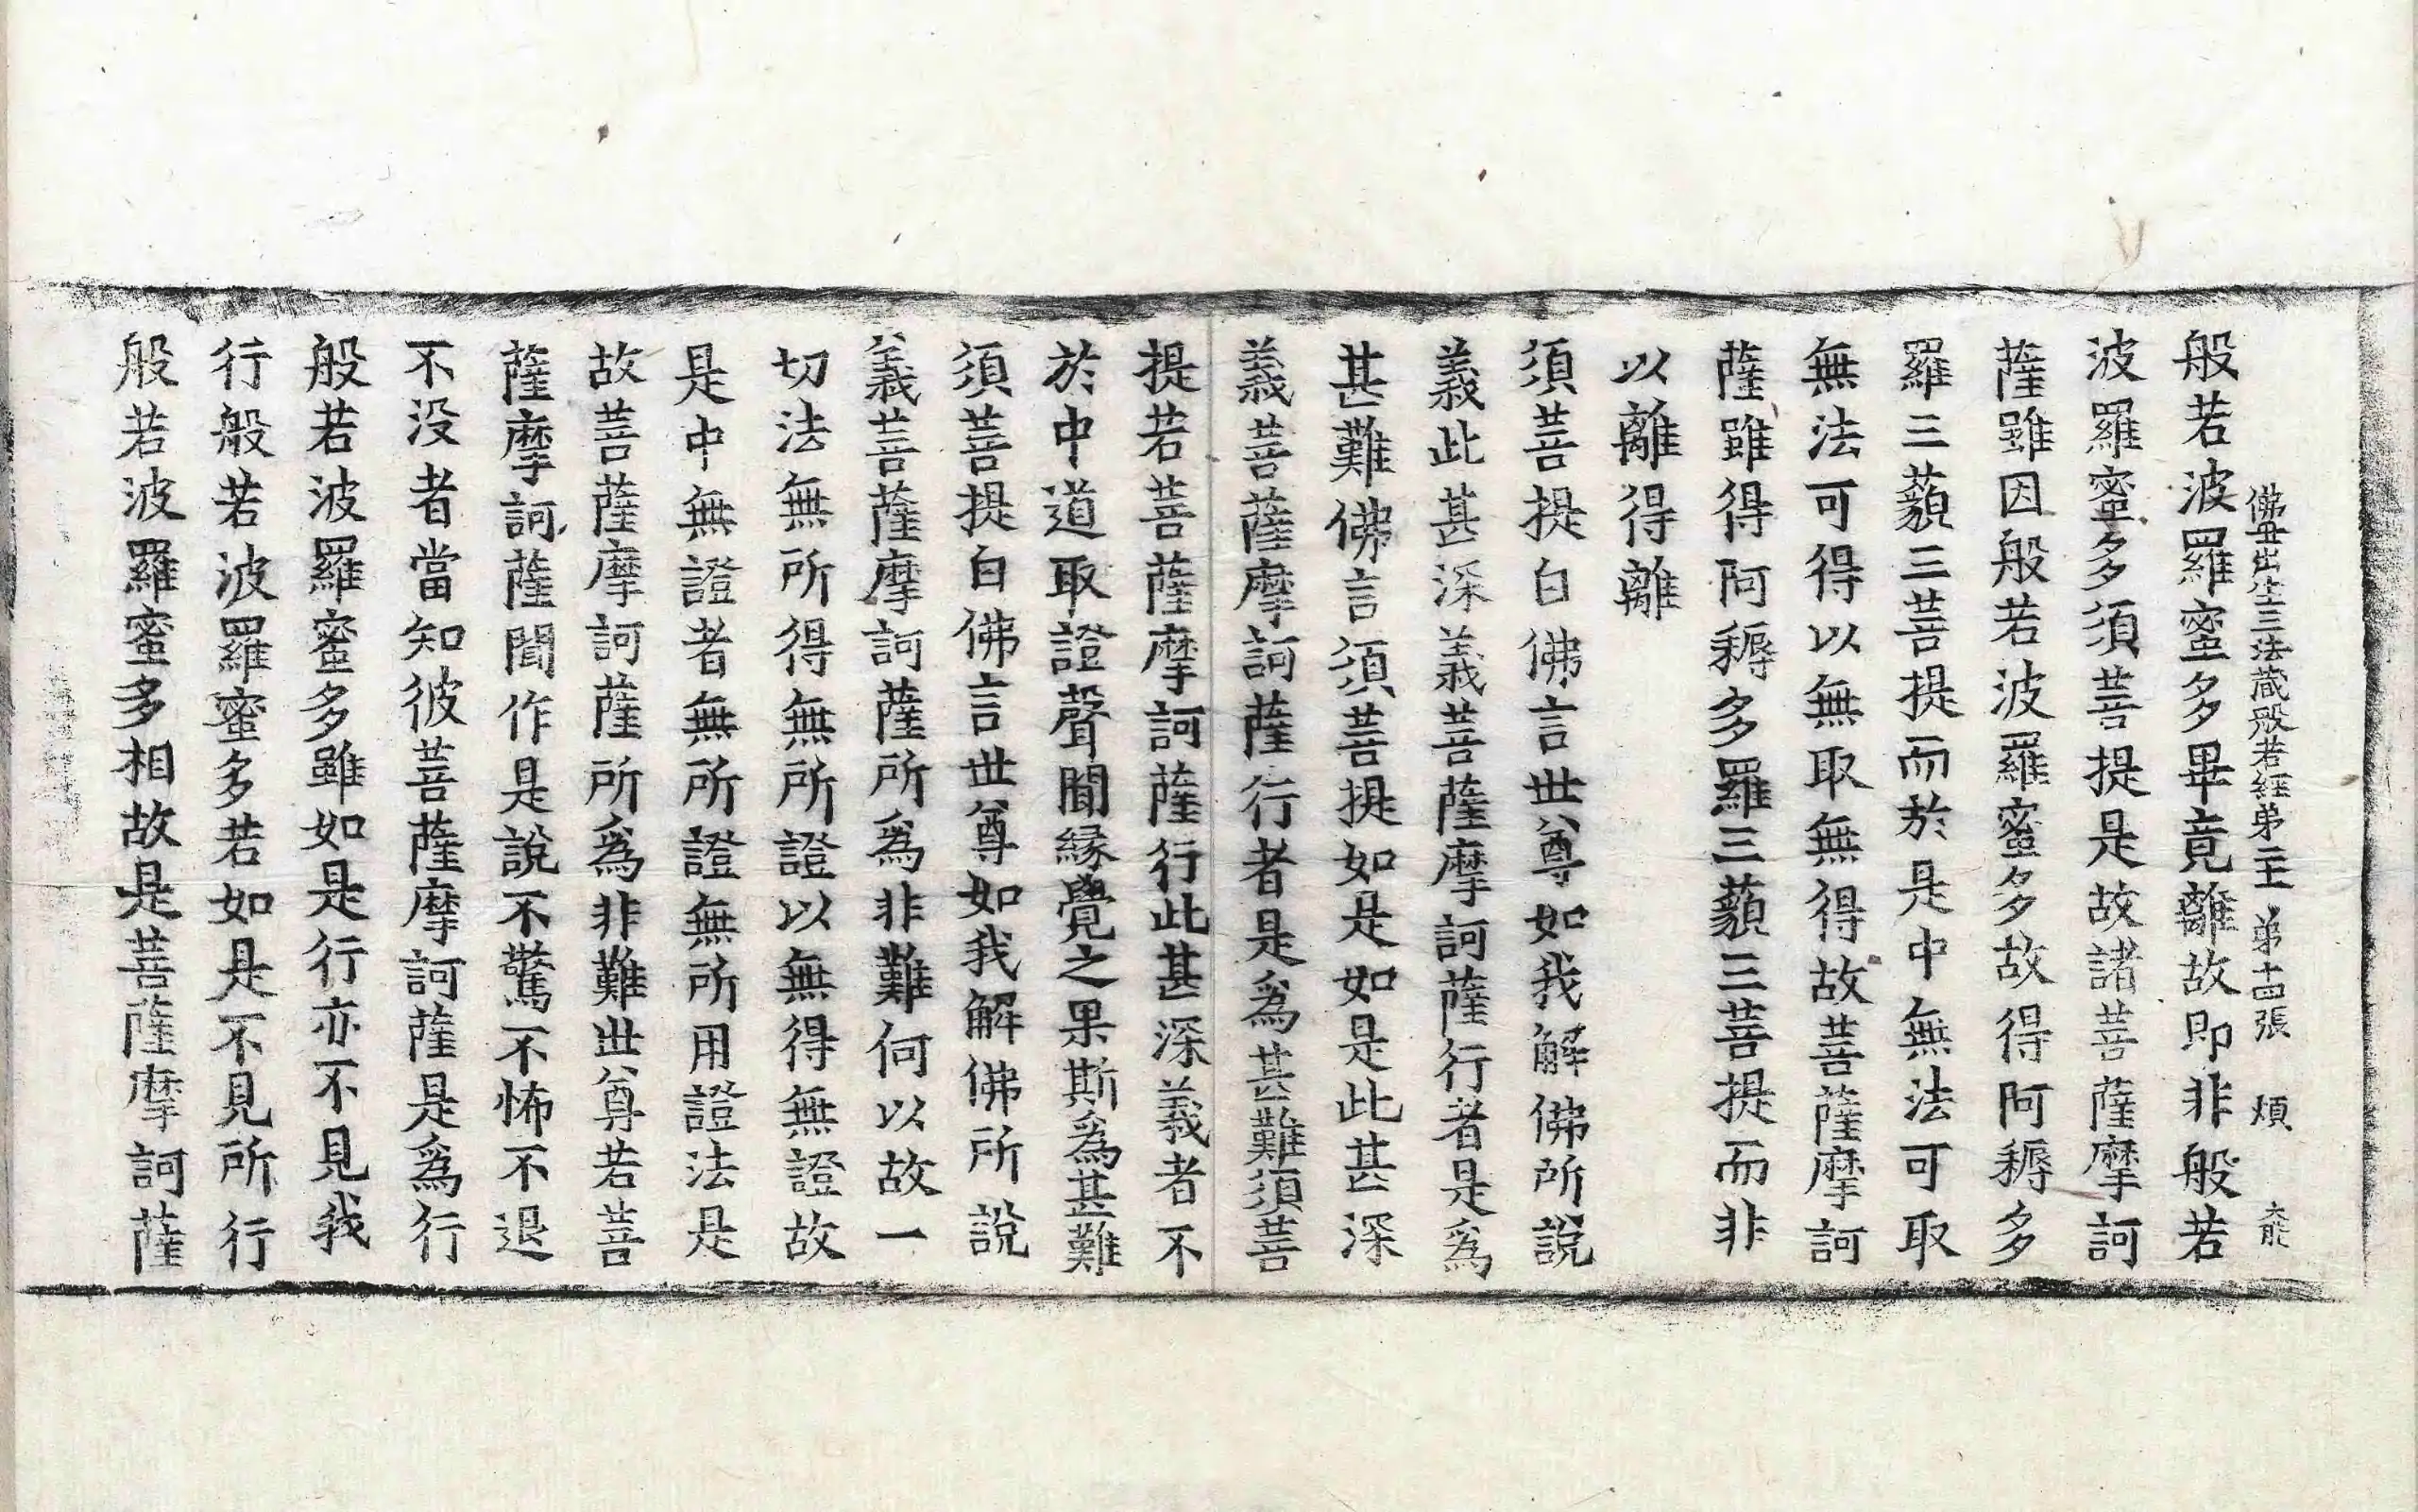 佛母出生三法藏般若經第二十 第十四張 煩 大能
般若波羅蜜多畢竟離故即非般若
波羅蜜多須菩提是故諸菩薩摩訶
薩雖因般若波羅蜜多故得阿耨多
羅三藐三菩提而於是中無法可取
無法可得以無取無得故菩薩摩訶
薩雖得阿耨多羅三藐三菩提而非
以離得離
須菩提白佛言世尊如我解佛所說
義此甚深義菩薩摩訶薩行者是爲
甚難佛言須菩提如是如是此甚深
義菩薩摩訶薩行者是爲甚難須菩
提若菩薩摩訶薩行此甚深義者不
於中道取證聲聞縁覺之果斯爲甚難
須菩提白佛言世尊如我解佛所說
義菩薩摩訶薩所爲非難何以故一
切法無所得無所證以無得無證故
是中無證者無所證無所用證法是
故菩薩摩訶薩所爲非難世尊若菩
薩摩訶薩聞作是說不驚不怖不退
不没者當知彼菩薩摩訶薩是爲行
般若波羅蜜多雖如是行亦不見我
行般若波羅蜜多若如是不見所行
般若波羅蜜多相故是菩薩摩訶薩